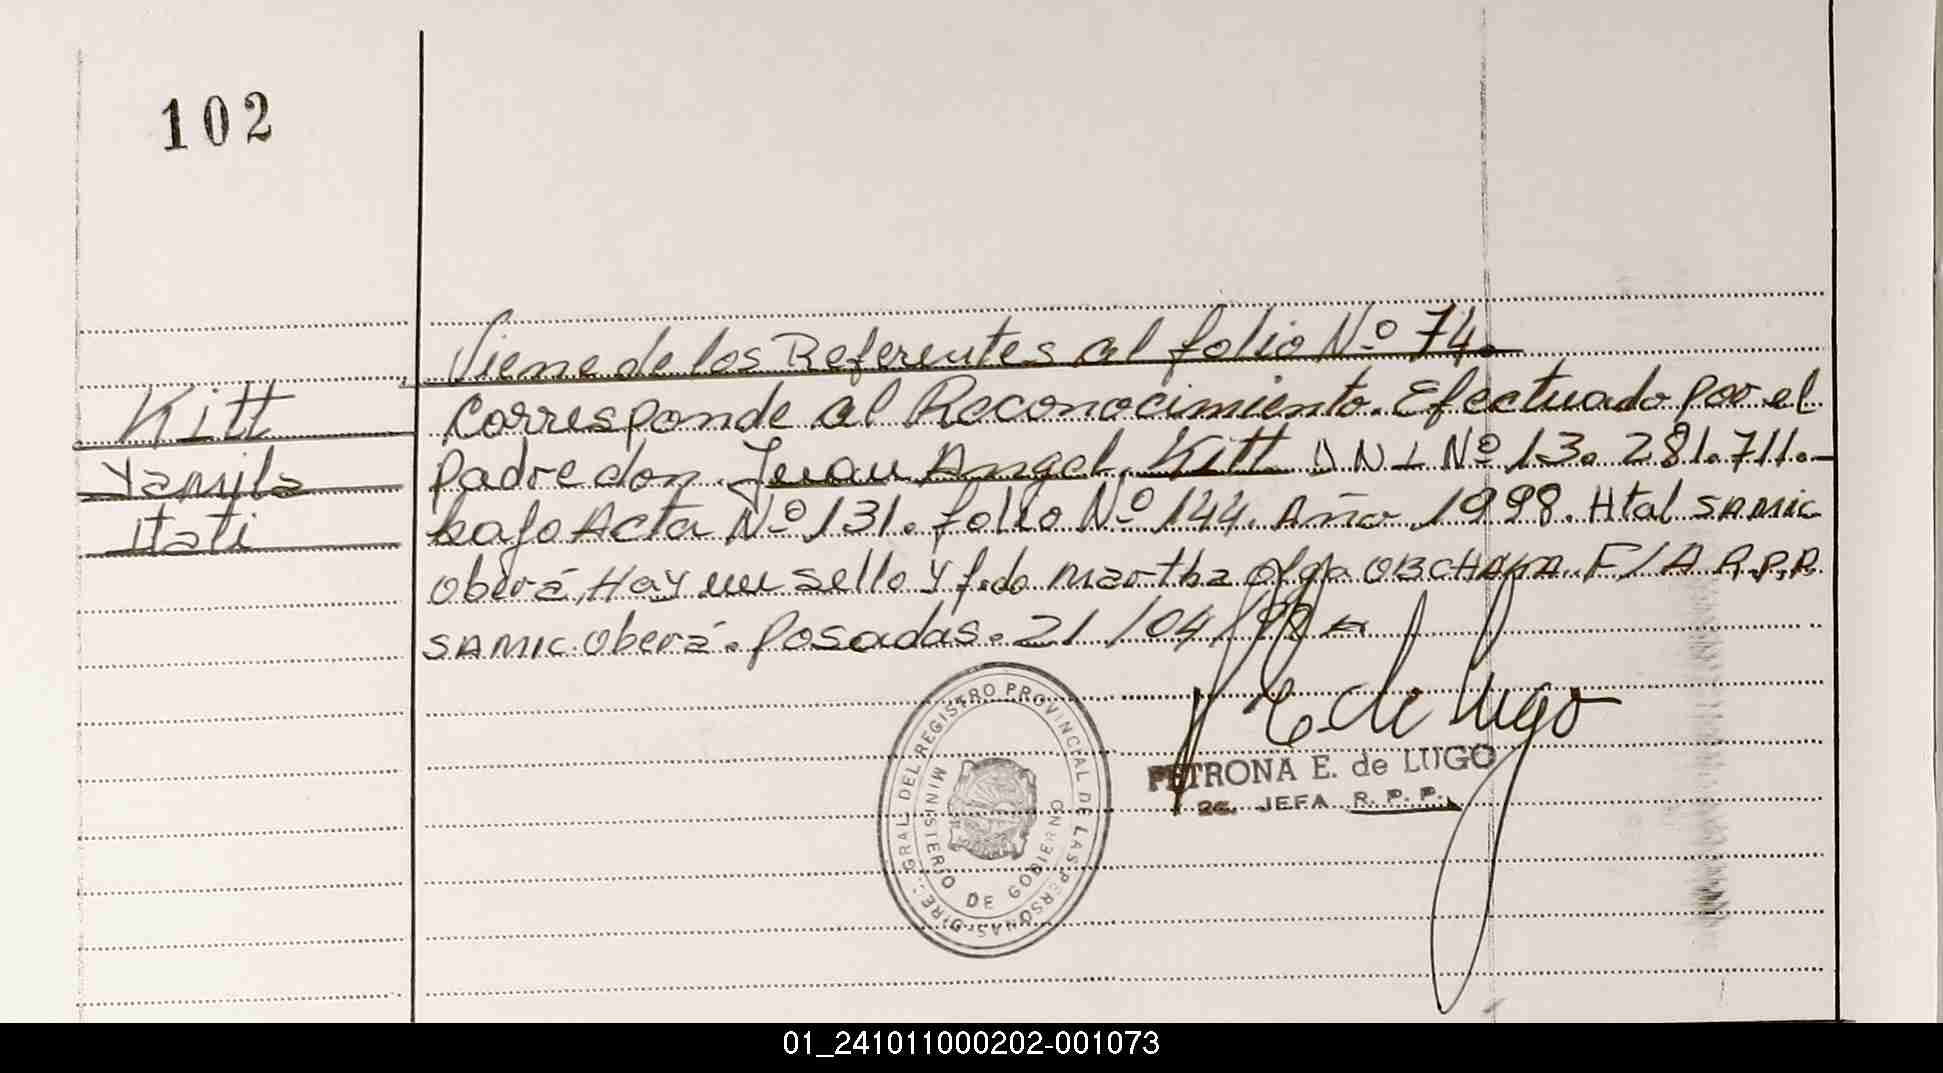 102
Viene de los Referentes al folio Nº 74.
Kitt
Yamila
Itati
Corresponde al Reconocimiento. Efectuado por el
padre don Juan Angel Kitt DNI Nº 13.281.711.-
bajo Acta Nº 131. folio Nº 144. Año 1998. Htal SAMIC
Oberá, Hay un sello y f.do Martha Olga F/A R.P.P.
SAMIC. Oberá. Posadas. 21/04/
E. de Lugo
PETRONA E. de LUGO
2a. JEFA R. P. P.
DIREC. GRAL DEL REGISTRO PROVINCIAL DE LAS PERSONAS
MINISTERIO DE GOBIERNO
01_241011000202-001073